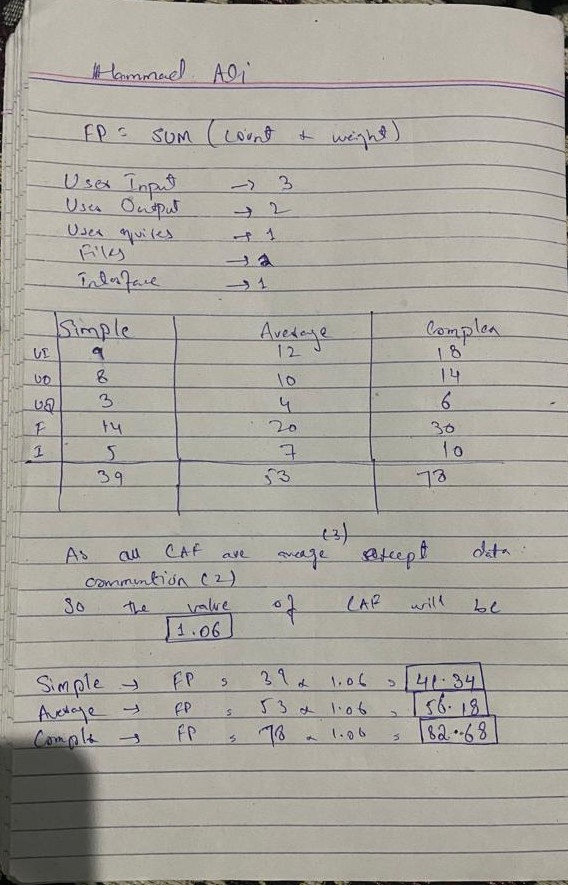 Hammad Ali
FP = SUM (count * weight)
User Input → 3
User Output → 2
User quires → 1
Files → 2
Interface → 1
Simple Average Complex
UI 9 12 18
UO 8 10 14
UQ 3 4 6
F 14 20 30
I 5 7 10
39 53 78
(3)
As all CAF are average except data
commention (2)
So the value of CAF will be
1.06
Simple → FP = 39 * 1.06 = 41.34
Average → FP = 53 * 1.06 = 56.18
Complx → FP = 78 * 1.06 = 82.68